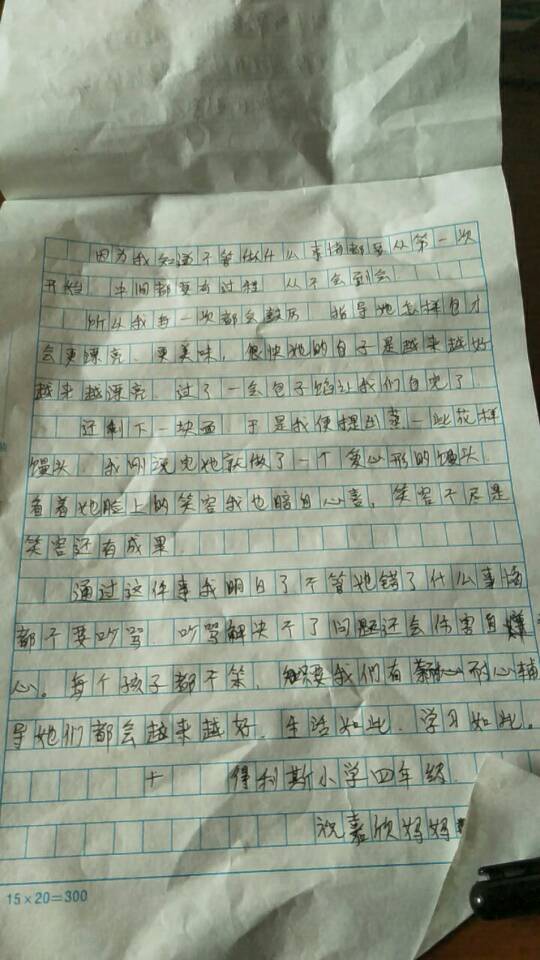 因为我知道不管做什么事情都要从第一次
开始，中间都要有过程，从不会到会
所以我每一次都会鼓励，指导她怎样包才
会更漂亮、更美味，很快她的包子是越来越好
越来越漂亮，过了一会包子馅让我们包完了
还剩下一块面，于是我便提出蒸一些花样
馒头，我刚说完她就做了一个爱心形的馒头，
看着她脸上的笑容我也暗自心喜，笑容不只是
笑容还有成果
通过这件事我明白了不管她错了什么事情
都不要吵骂，吵骂解决不了问题还会伤害自
心。每个孩子都不笨，只要我们有耐心辅
导她们都会越来越好，生活如此，学习如此。
十 得利斯小学四年级
祝嘉欣妈妈
15×20=300